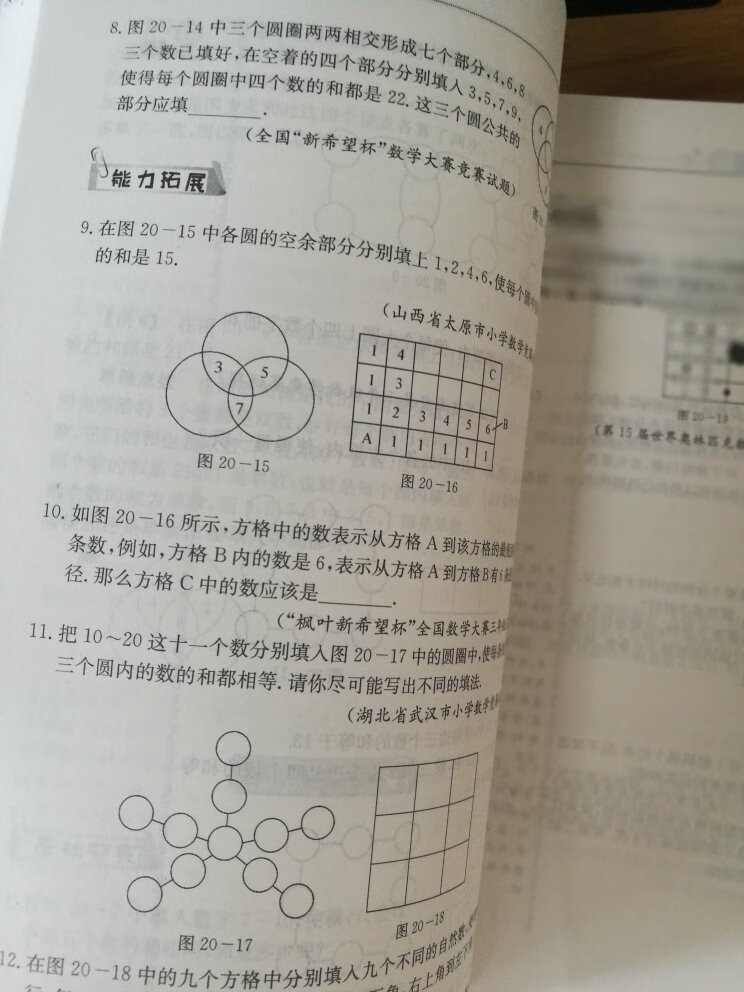 8. 图 20-14 中三个圆圈两两相交形成七个部分,4,6,8
三个数已填好,在空着的四个部分分别填入 3,5,7,9,
使得每个圆圈中四个数的和都是 22. 这三个圆公共的
部分应填________.
(全国“新希望杯”数学大赛竞赛试题)
4
能力拓展
9. 在图 20-15 中各圆的空余部分分别填上 1,2,4,6,使每个圆中
的和是 15.
(山西省太原市小学数学竞
3 5
7
图 20-15
1 4 C
1 3
1 2 3 4 5 6 B
A 1 1 1 1 1
图 20-16
10. 如图 20-16 所示,方格中的数表示从方格 A 到该方格的最短
条数,例如,方格 B 内的数是 6,表示从方格 A 到方格 B 有 6
径. 那么方格 C 中的数应该是________.
(“枫叶新希望杯”全国数学大赛三年级
11. 把 10~20 这十一个数分别填入图 20-17 中的圆圈中,使每
三个圆内的数的和都相等. 请你尽可能写出不同的填法.
(湖北省武汉市小学数学竞
图 20-17
图 20-18
12. 在图 20-18 中的九个方格中分别填入九个不同的自然数,
右上角到左下
图 20-19
(第 15 届世界奥林匹克数